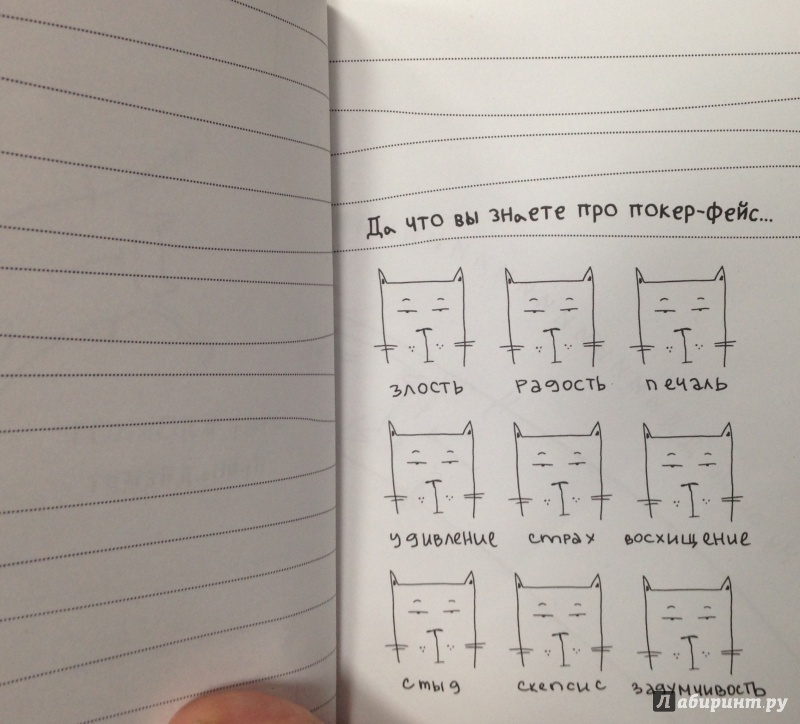 Да что вы знаете про покер-фейс...
злость радость печаль
удивление страх восхищение
стыд скепсис задумчивость
Лабиринт.ру